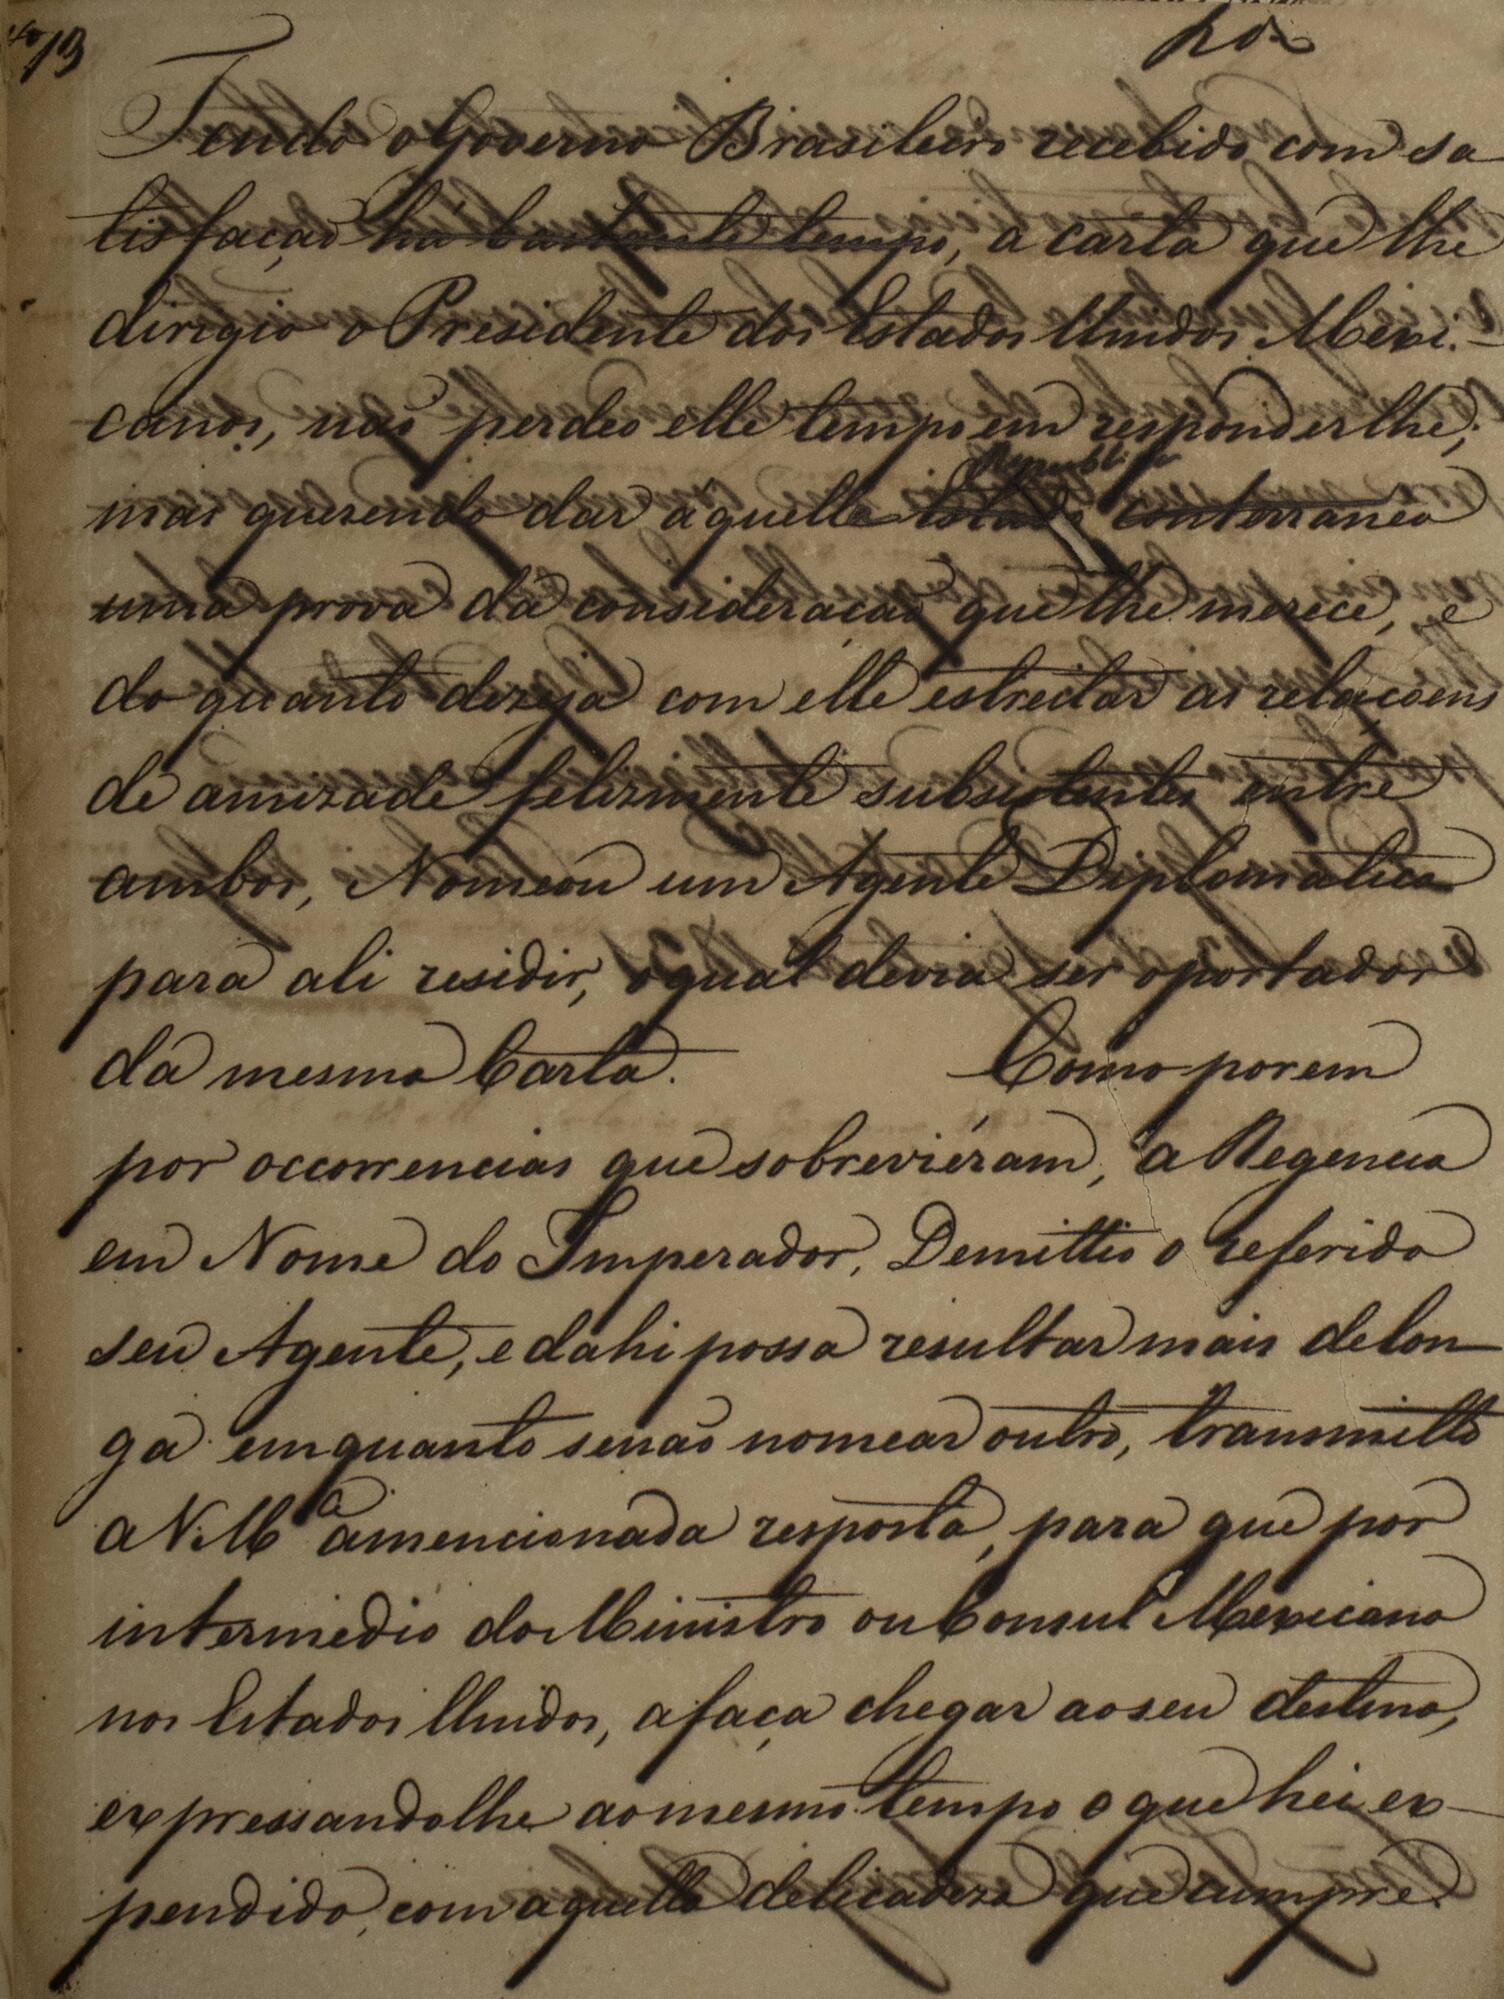 Tendo o Governo Brasileiro recebido com sa
tisfação há bastante tempo, a carta que lhe
dirigio o Presidente dos Estados Unidos Mexi-
canos, não perdeo elle tempo em responder lhe;
Republica
mas querendo dar áquelle Estado conterraneo
uma prova da consideração que lhe merece, e
do quanto dezeja com elle estreitar as relaçoens
de amizade felizmente subsistentes entre
ambos, Nomeou um Agente Diplomatico
para ali residir, o qual devia ser o portador
da mesma Carta. Como porem
por occorrencias que sobreviéram, a Regencia
em Nome do Imperador, Demittio o referido
seu Agente, e dahi possa resultar mais delon-
ga em quanto se não nomear outro, transmitto
a V. M.ce a mencionada resposta, para que por
intermedio do Ministro ou Consul Mexicano
nos Estados Unidos, a faça chegar ao seu destino,
expressando lhe ao mesmo tempo o que hei ex-
pendido, com aquella delicadeza que cumpre.